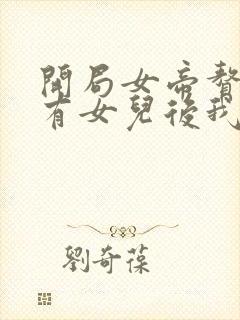 開局女帝贅
有女兒後我
劉奇葆